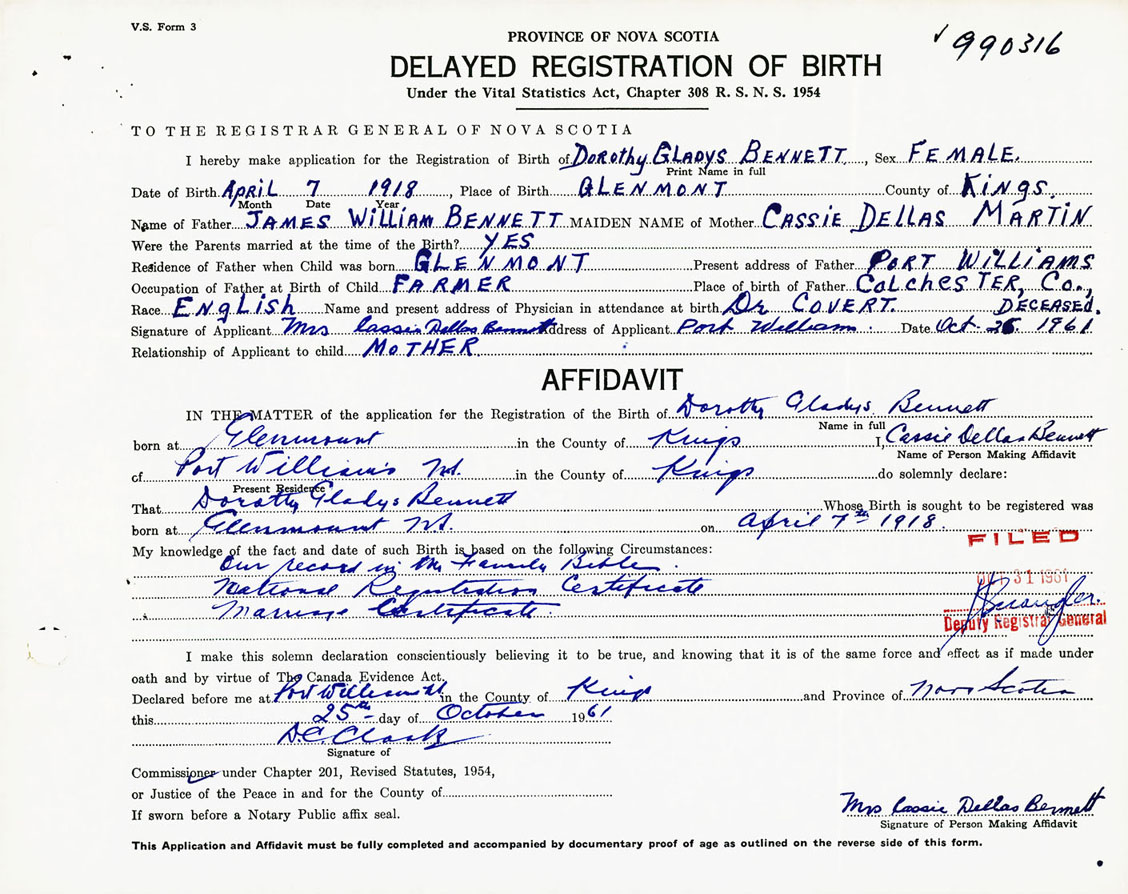 V.S. Form 3
✓ 990316
PROVINCE OF NOVA SCOTIA
DELAYED REGISTRATION OF BIRTH
Under the Vital Statistics Act, Chapter 308 R. S. N. S. 1954
TO THE REGISTRAR GENERAL OF NOVA SCOTIA
I hereby make application for the Registration of Birth of Dorothy GLADYS BENNETT, Sex FEMALE.
Print Name in full
Date of Birth APRIL 7 1918, Place of Birth GLENMONT County of KINGS
Month Date Year
Name of Father JAMES WILLIAM BENNETT MAIDEN NAME of Mother CASSIE DELLAS MARTIN
Were the Parents married at the time of the Birth? YES
Residence of Father when Child was born GLENMONT Present address of Father PORT WILLIAMS
Occupation of Father at Birth of Child FARMER Place of birth of Father COLCHESTER, Co.,
Race ENGLISH Name and present address of Physician in attendance at birth Dr COVERT. DECEASED.
Signature of Applicant Mrs Cassie Dellas Bennett Address of Applicant Port William : Date Oct. 1961
Relationship of Applicant to child MOTHER
AFFIDAVIT
IN THE MATTER of the application for the Registration of the Birth of Dorothy Gladys Bennett
Name in full
born at Glenmount in the County of Kings I, Cassie Dellas Bennett
Name of Person Making Affidavit
of Port William's N.S. in the County of Kings do solemnly declare:
Present Residence
That Dorothy Gladys Bennett Whose Birth is sought to be registered was
born at Glenmount N.S. on April 7th 1918.
FILED
My knowledge of the fact and date of such Birth is based on the following Circumstances:
Our record in the Family Bible.
National Registration Certificate
OCT 31 1961
Marriage Certificate
Deputy Registrar General
I make this solemn declaration conscientiously believing it to be true, and knowing that it is of the same force and effect as if made under
oath and by virtue of The Canada Evidence Act.
Declared before me at Port Williams in the County of Kings and Province of Nova Scotia
this 25th day of October 1961
D.C. Clark
Signature of
Commissioner under Chapter 201, Revised Statutes, 1954,
or Justice of the Peace in and for the County of
If sworn before a Notary Public affix seal.
Mrs Cassie Dellas Bennett
Signature of Person Making Affidavit
This Application and Affidavit must be fully completed and accompanied by documentary proof of age as outlined on the reverse side of this form.